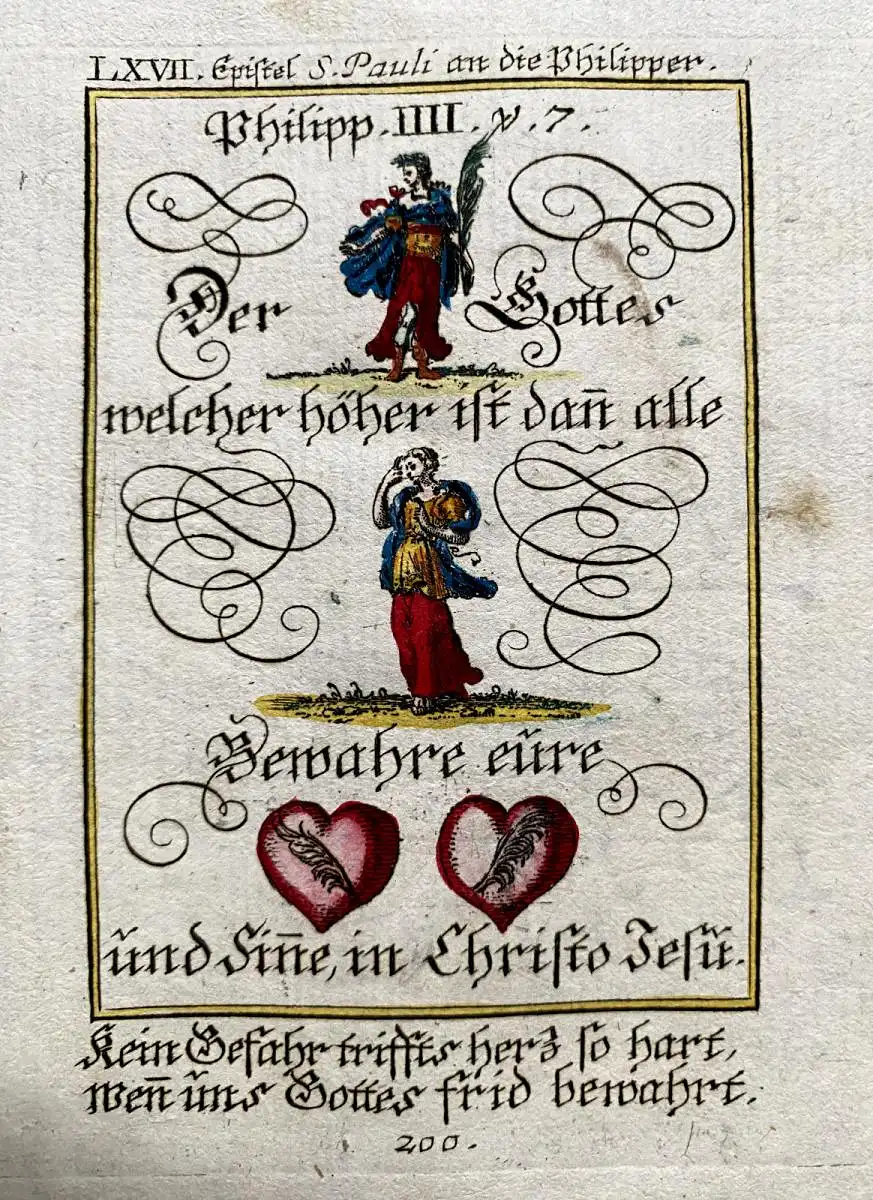 LXVII. Epistel S. Pauli an die Philipper.
Philipp. IIII. v. 7.
Der Gottes
welcher höher ist dan̄ alle
Bewahre eŭre
ŭnd Sin̄e, in Christo Jesŭ.
Kein Gefahr triffts herz so hart,
wen̄ ŭns Gottes frid bewahrt.
200.